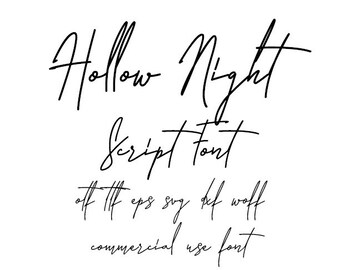 Hollow Night
Script Font
otf ttf eps svg dxf woff
commercial use font